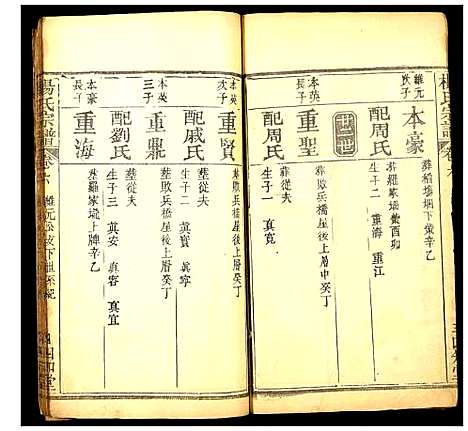 楊氏宗譜
卷六
維元
次子
本豪
葬稻塲堋下癸辛乙
配周氏
葬羅家塆癸酉卯
生子二 重海 重江
廿二世
本英
長子
重聖
葬敗兵橋屋後上厝中癸丁
配周氏
葬從夫
生子一 真寬
本英
次子
重賢
葬敗兵橋屋後上厝癸丁
配戚氏
葬從夫
生子二 真賓 真寧
本英
三子
重鼎
葬敗兵橋屋後上厝癸丁
配劉氏
葬從夫
生子三 真安 真宜
本豪
長子
重海
葬羅家塆上牌辛乙
楊氏宗譜
卷六
四知堂